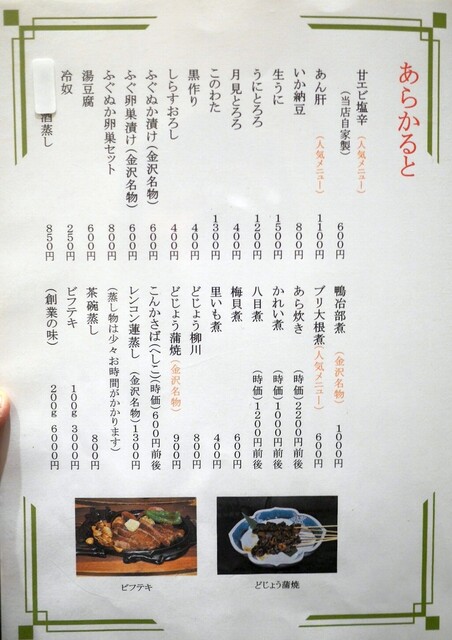 あらかると
甘エビ塩辛(人気メニュー)
(当店自家製) 600円
あん肝(人気メニュー) 1100円
いか納豆 800円
生うに 1500円
うにとろろ 1200円
月見とろろ 400円
このわた 1300円
黒作り 400円
しらすおろし 400円
ふぐぬか漬け(金沢名物) 600円
ふぐ卵巣漬け(金沢名物) 600円
ふぐぬか卵巣セット 800円
湯豆腐 600円
冷奴 250円
酒蒸し 850円
鴨冶部煮(金沢名物) 1000円
ブリ大根煮(人気メニュー) 600円
あら炊き (時価)2200円前後
かれい煮 (時価)1000円前後
八目煮 (時価)1200円前後
梅貝煮 600円
里いも煮 400円
どじょう柳川 800円
どじょう蒲焼(金沢名物) 900円
こんかさば(へしこ)(時価)600円前後
レンコン蓮蒸し(金沢名物)1300円
(蒸し物は少々お時間がかかります)
茶碗蒸し 800円
ビフテキ 100g 3000円
(創業の味) 200g 6000円
ビフテキ
どじょう蒲焼